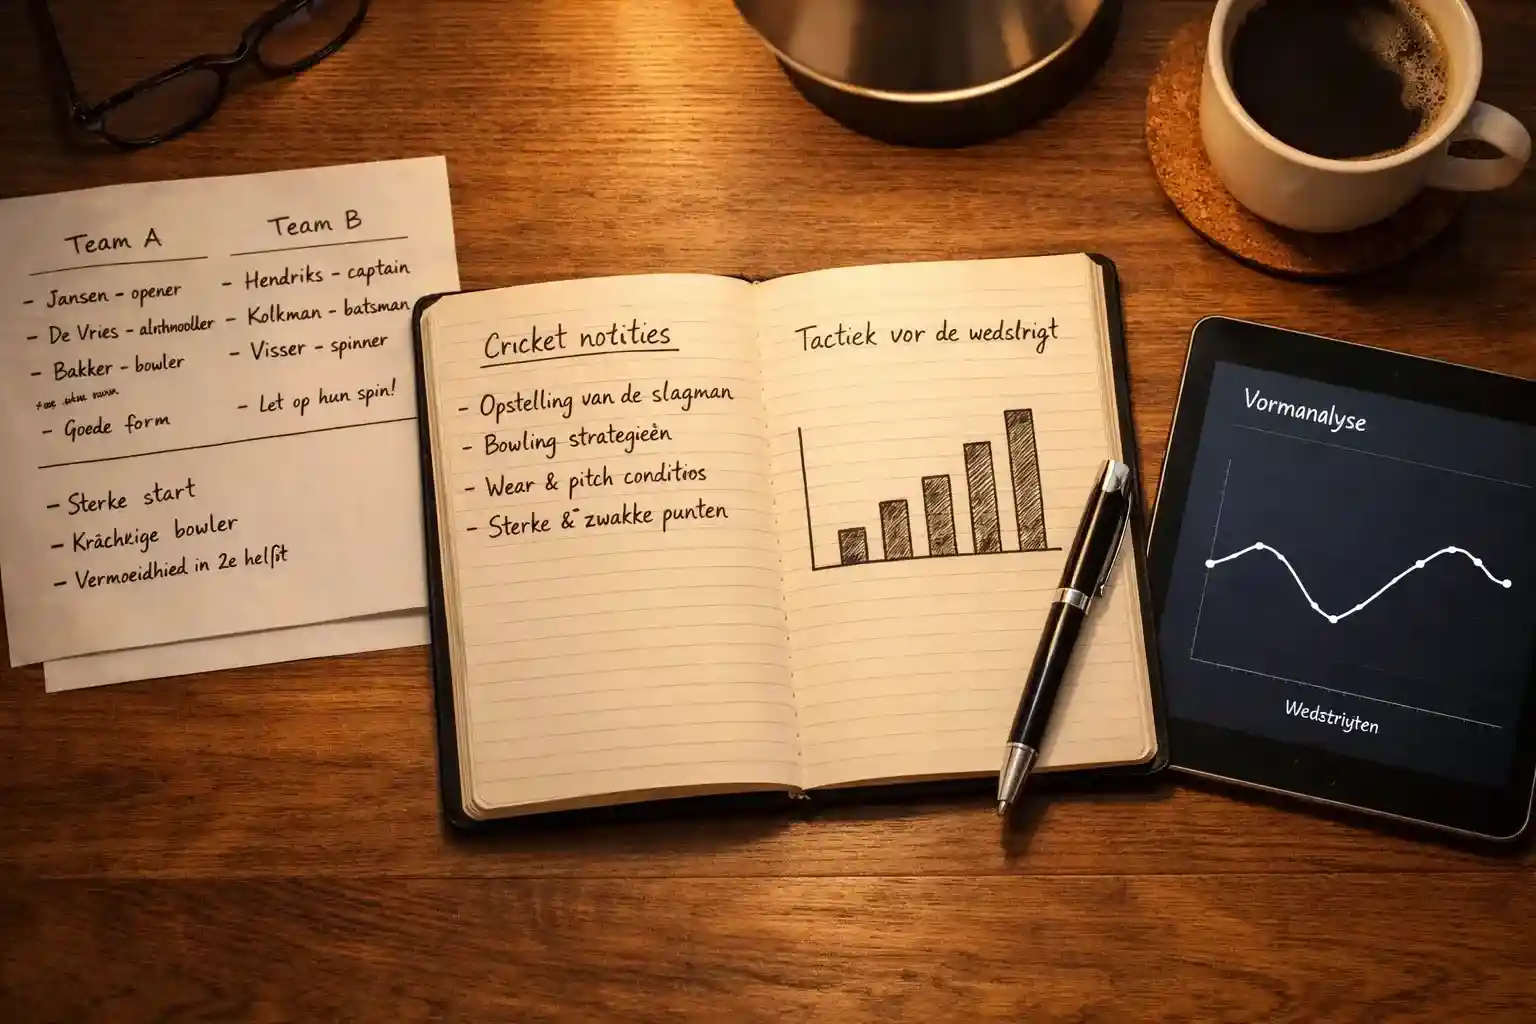 Team A
- Jansen - opener
- De Vries -
- Bakker - bowler
- Goede form
Team B
- Hendriks - captain
- Kolkman - batsman
- Visser - spinner
- Let op hun spin!
- Sterke start
- Kráchkige bowler
- Vermoeidhied in 2e helfit
Cricket notities
- Opstelling van de slagman
- Bowling strategieën
- Wear & pitch conditios
- Sterke & zwakke punten
Tactiek vor de wedslrigt
Vormanalyse
Wedstriyten